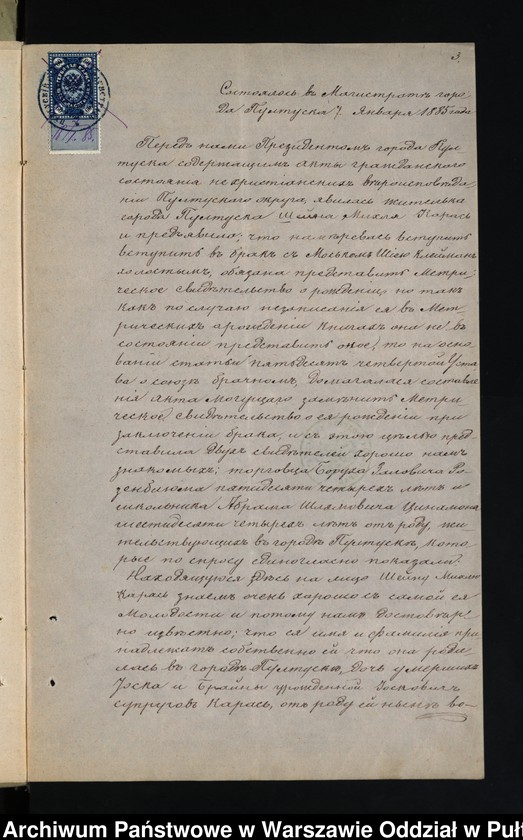 3.
Состоялось въ Магистратѣ горо-
да Пултуска 7. Января 1885 года
Передъ нами Президентомъ города Пул
туска содержащимъ акты гражданскаго
состоянія нехристіанскихъ вѣроисповѣда
ній Пултускаго округа, явилась жителька
города Пултуска Шейна Михля Карась
и предъявила, что намѣреваясь вступить
вступить въ бракъ съ Моськомъ
холостымъ, обязана представить Метри
ческое свидѣтельство о рожденіи, но такъ
какъ по случаю незаписанія ея въ Мет-
рическихъ о рожденіи книгахъ она не въ
состояніи представить оное, то на осно
ваніи статьи пятьдесятъ четвертой Уста
ва о союзѣ брачномъ, домагалась составле
нія Акта могущаго замѣнить Метри
ческое свидѣтельство о ея рожденіи при
заключеніи брака, и съ этою цѣлью пред
ставила двухъ свидѣтелей хорошо намъ
знакомыхъ; торговца Боруха Ро
зенблюма пятидесяти четырехъ лѣтъ и
школьника Абрама Шляховича Цинамона
шестидесяти четырехъ лѣтъ отъ роду, жи
тельствующихъ въ городѣ Пултускѣ, кото
рые по спросу единогласно показали:
Находящуюся здѣсь на лицо Шейну Михлю
Карась знаемъ очень хорошо съ самой ея
Молодости и потому намъ достовѣр
но извѣстно; что ея имя и фамилія при
надлежатъ собственно ей что она роди
лась въ городѣ Пултускѣ, дочь умершихъ
Іоска и Брайны урожденной Іосковичъ
супруговъ Карась, отъ роду ей нынѣ во-
Archiwum Państwowe w Warszawie Oddział w Puł